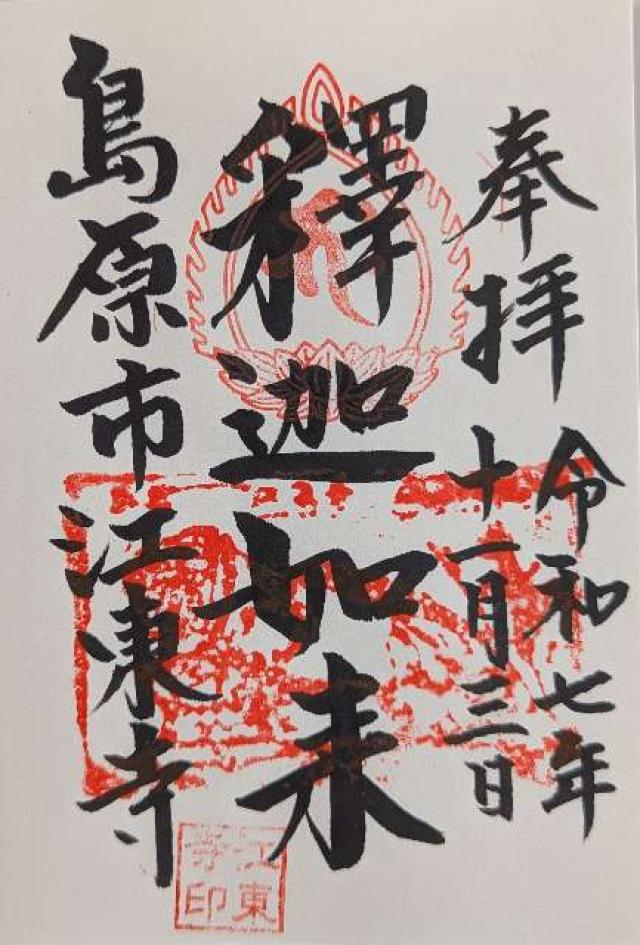 奉拝
令和七年
十一月三日
釋迦如来
島原市江東寺
江東
寺印